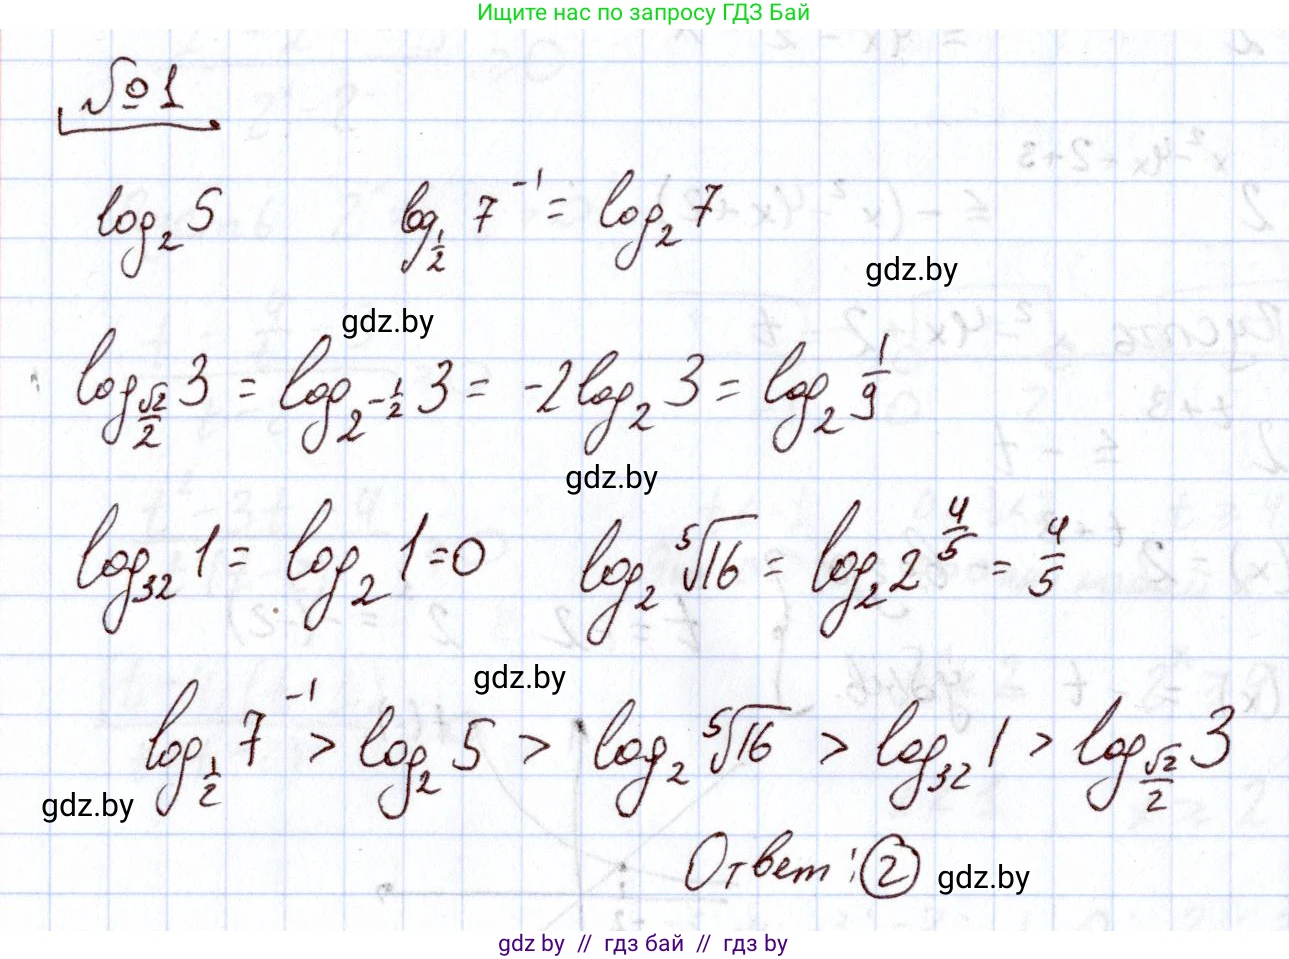 Ищите нас по запросу ГДЗ Бай
№1
log₂ 5 log_{1/2} 7⁻¹ = log₂ 7
gdz.by
gdz.by
log_{√2/2} 3 = log_{2^{-1/2}} 3 = -2 log₂ 3 = log₂ 1/9
gdz.by
log₃₂ 1 = log₂ 1 = 0 log₂ ⁵√16 = log₂ 2^{4/5} = 4/5
gdz.by
log_{1/2} 7⁻¹ > log₂ 5 > log₂ ⁵√16 > log₃₂ 1 > log_{√2/2} 3
gdz.by
Ответ: 2 gdz.by
gdz by // гдз бай // гдз by